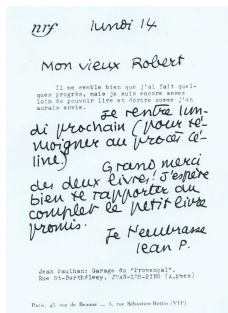 nrf
lundi 14
Mon vieux Robert
Il me semble bien que j'ai fait quel-
ques progrès, mais je suis encore assez
loin de pouvoir lire et écrire comme j'en
aurais envie.
Je rentre lun-
di prochain (pour té-
moigner au procès Cé-
line.)
Grand merci
des deux livres! J'espère
bien te rapporter au
complet le petit livre
promis.
Je t'embrasse
Jean P.
Jean Paulhan: Garage du "Provençal",
Rue St-Barthélemy, JUAN-LES-PINS (A.Mmes)
Paris, 43, rue de Beaune — 5, rue Sébastien-Bottin (VIIe)